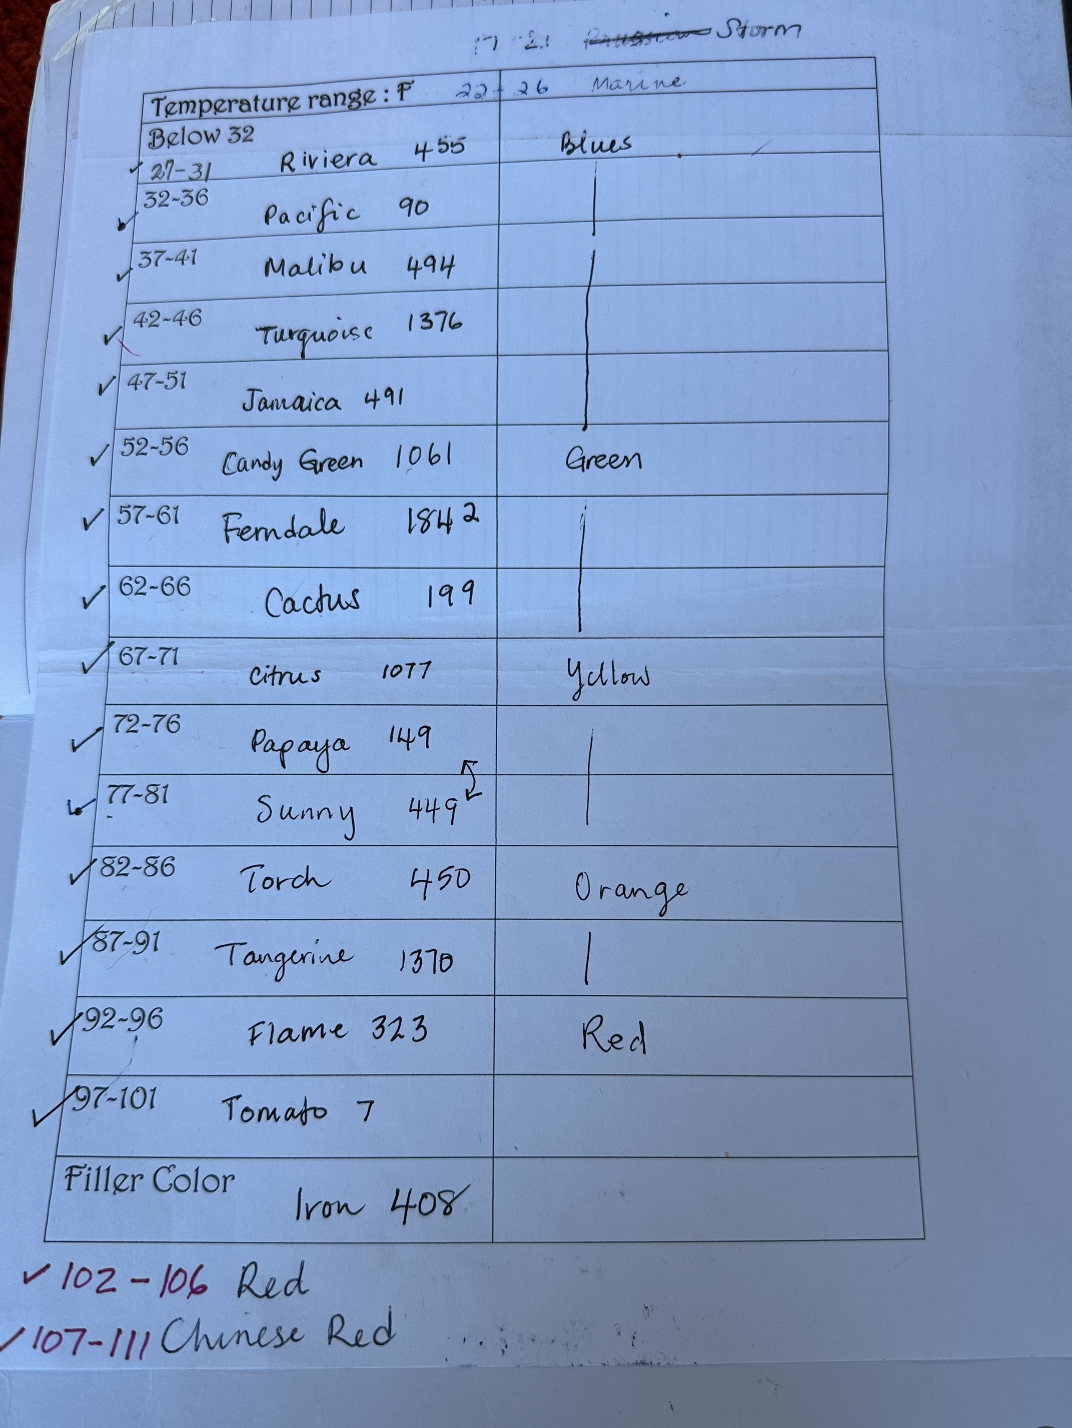 17 21 Prussian Storm
Temperature range: F 22-26 Marine
Below 32
27-31 Riviera 455 Blues
32-36 Pacific 90
37-41 Malibu 494
42-46 Turquoise 1376
47-51 Jamaica 491
52-56 Candy Green 1061 Green
57-61 Ferndale 1842
62-66 Cactus 199
67-71 Citrus 1077 Yellow
72-76 Papaya 149
77-81 Sunny 449
82-86 Torch 450 Orange
87-91 Tangerine 1370
92-96 Flame 323 Red
97-101 Tomato 7
Filler Color Iron 408
102-106 Red
107-111 Chinese Red